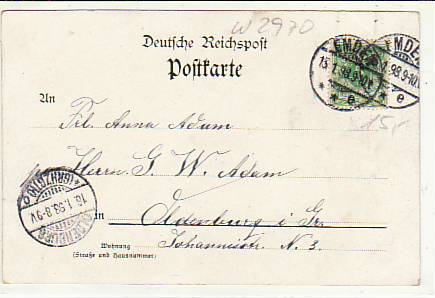 W 2970
Deutsche Reichspost
Postkarte
EMDEN
15.1.98.9-10
e
EMDEN
.1.98.9-10
e
15,-
An
Frl. Anna Adam
Herrn G. W. Adam
in Oldenburg i. Gr.
Wohnung
(Straße und Hausnummer)
Johannisstr. N. 3.
OLDENBURG
16.1.98.8-9V
*(GRHZGTH)